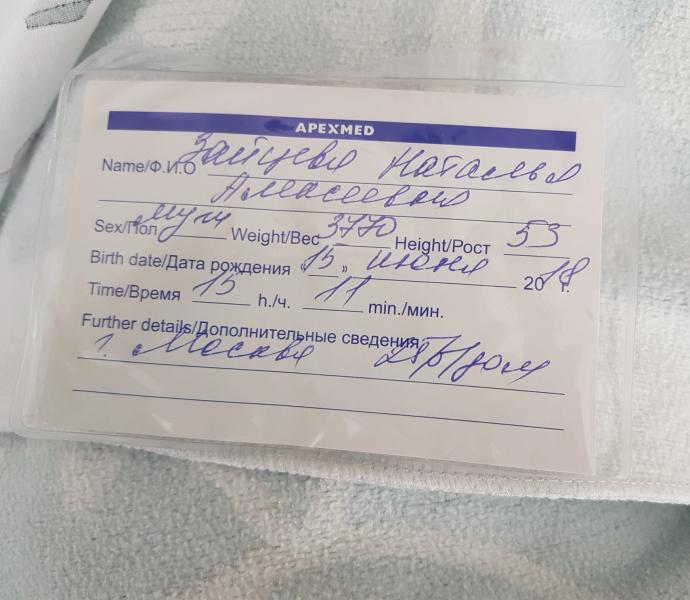 APEXMED
Name/Ф.И.О Зайцева Наталья
Алексеевна
Sex/Пол муж Weight/Вес 3770 Height/Рост 53
Birth date/Дата рождения "15" июня 2018 г.
Time/Время 15 h./ч. 11 min./мин.
Further details/Дополнительные сведения
г. Москва р/дом